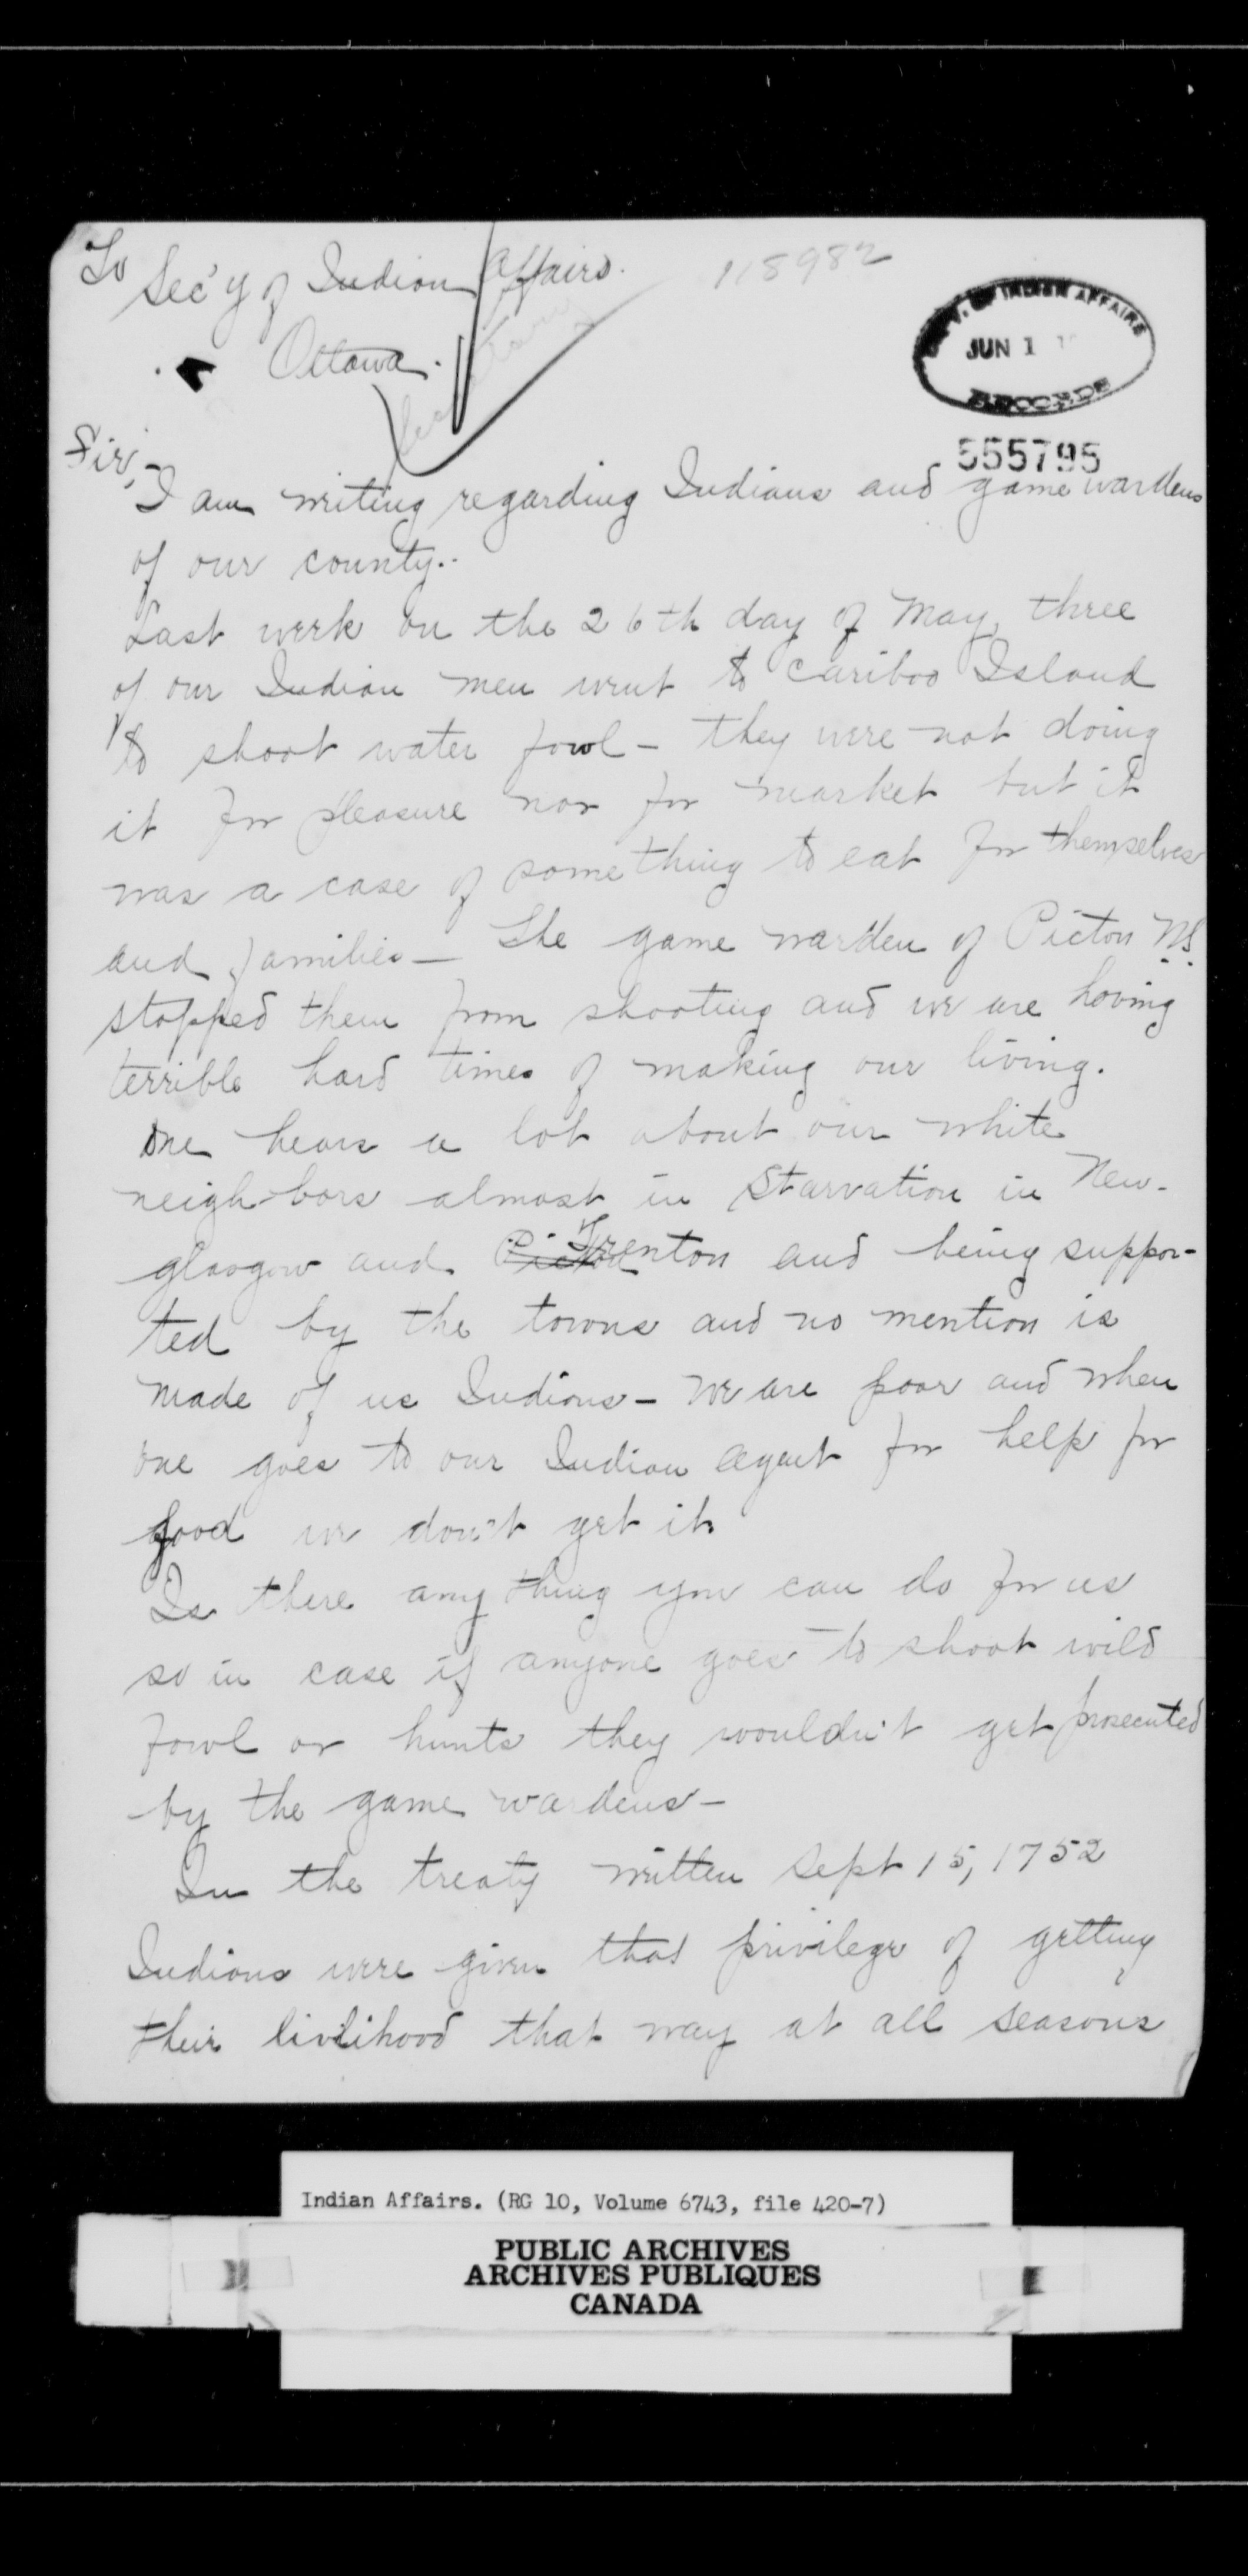 To
Sec'y of Indian Affairs.
118982
Ottawa.
DEPT. OF INDIAN AFFAIRS
JUN 1
RECORDS
555795
Sir,-
I am writing regarding Indians and game wardens
of our county..
Last week on the 26th day of May, three
of our Indian men went to Cariboo Island
to shoot water fowl - they were not doing
it for pleasure nor for market but it
was a case of some thing to eat for themselves
and families - The game warden of Pictou N.S.
stopped them from shooting and we are having
terrible hard times of making our living.
One hears a lot about our white
neigh-bors almost in starvation in New-
glasgow and Pictou Trenton and being suppor-
ted by the towns and no mention is
made of us Indians - we are poor and when
one goes to our Indian Agent for help for
food we don't get it.
Is there any thing you can do for us
so in case if anyone goes to shoot wild
fowl or hunts they wouldn't get prosecuted
by the game wardens -
In the treaty written Sept 15, 1752
Indians were given that privilege of getting
their livlihood that way at all seasons
Indian Affairs. (RG 10, Volume 6743, file 420-7)
PUBLIC ARCHIVES
ARCHIVES PUBLIQUES
CANADA